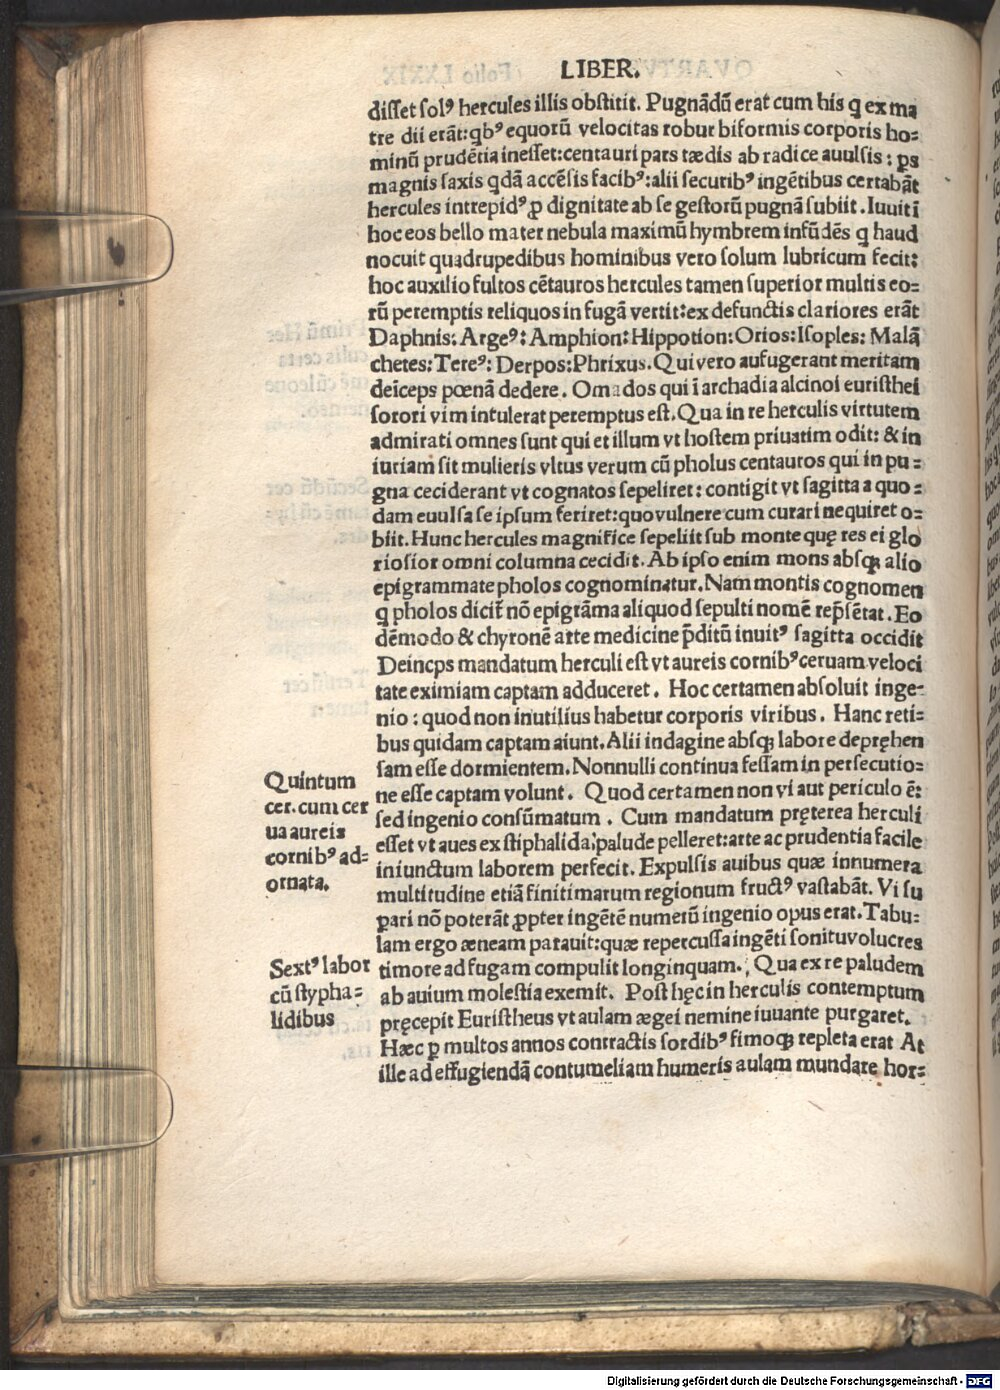 LIBER.
diſſet ſolꝰ hercules illis obſtitit. Pugnādū erat cum his q ex ma
tre dii erāt:qbꝰ equorū velocitas robur biformis corporis ho⸗
minū prudētia ineſſet:centauri pars tædis ab radice auulſis : ps
magnis ſaxis qdā accēſis facibꝰ:alii ſecuribꝰ ingētibus certabāt
hercules intrepidꝰ ꝓ dignitate ab ſe geſtorū pugnā ſubiit . Iuuit ī
hoc eos bello mater nebula maximū hymbrem infūdēs q haud
nocuit quadrupedibus hominibus vero ſolum lubricum fecit:
hoc auxilio fultos cētauros hercules tamen ſuperior multis eo⸗
rū peremptis reliquos in fugā vertit:ex defunctis clariores erāt
Daphnis: Argeꝰ: Amphion: Hippotion: Orios: Iſoples: Malā
chetes: Tereꝰ: Derpos: Phrixus. Qui vero aufugerant meritam
deīceps pœnā dedere . Omados qui ī archadia alcinoi euriſthei
ſorori vim intulerat peremptus eſt. Qua in re herculis virtutem
admirati omnes ſunt qui et illum vt hoſtem priuatim odit: & in
iuriam ſit mulieris vltus verum cū pholus centauros qui in pu⸗
gna ceciderant vt cognatos ſepeliret: contigit vt ſagitta a quo⸗
dam euulſa ſe ipſum feriret: quo vulnere cum curari nequiret o⸗
biit. Hunc hercules magnifice ſepeliit ſub monte quę res ei glo
rioſior omni columna cecidit. Ab ipſo enim mons abſqꝫ alio
epigrammate pholos cognominatur. Nam montis cognomen
q pholos dicit̄ nō epigrāma aliquod ſepulti nomē rep̄ſētat. Eo
dēmodo & chyronē arte medicine p̄ditū inuitꝰ ſagitta occidit
Deincps mandatum herculi eſt vt aureis cornibꝰ ceruam veloci
tate eximiam captam adduceret . Hoc certamen abſoluit inge⸗
nio : quod non inutilius habetur corporis viribus. Hanc reti⸗
bus quidam captam aiunt. Alii indagine abſqꝫ labore depręhen
ſam eſſe dormientem. Nonnulli continua feſſam in perſecutio⸗
ne eſſe captam volunt . Quod certamen non vi aut periculo ē:
ſed ingenio conſūmatum . Cum mandatum pręterea herculi
eſſet vt aues ex ſtiphalida palude pelleret: arte ac prudentia facile
iniunctum laborem perfecit. Expulſis auibus quæ innumera
multitudine etiā finitimarum regionum fructꝰ vaſtabāt. Vi ſu
pari nō poterāt ꝓpter ingētē numerū ingenio opus erat. Tabu⸗
lam ergo æneam parauit: quæ repercuſſa ingēti ſonitu volucres
timore ad fugam compulit longinquam. Qua ex re paludem
ab auium moleſtia exemit. Poſt hęc in herculis contemptum
pręcepit Euriſtheus vt aulam ægei nemine iuuante purgaret.
Hæc ꝑ multos annos contractis ſordibꝰ fimoqꝫ repleta erat At
ille ad effugiendā contumeliam humeris aulam mundare hor⸗
Quintum
cer. cum cer
ua aureis
cornibꝰ ad⸗
ornata.
Sextꝰ labor
cū ſtypha⸗
lidibus
Digitalisierung gefördert durch die Deutsche Forschungsgemeinschaft - DFG